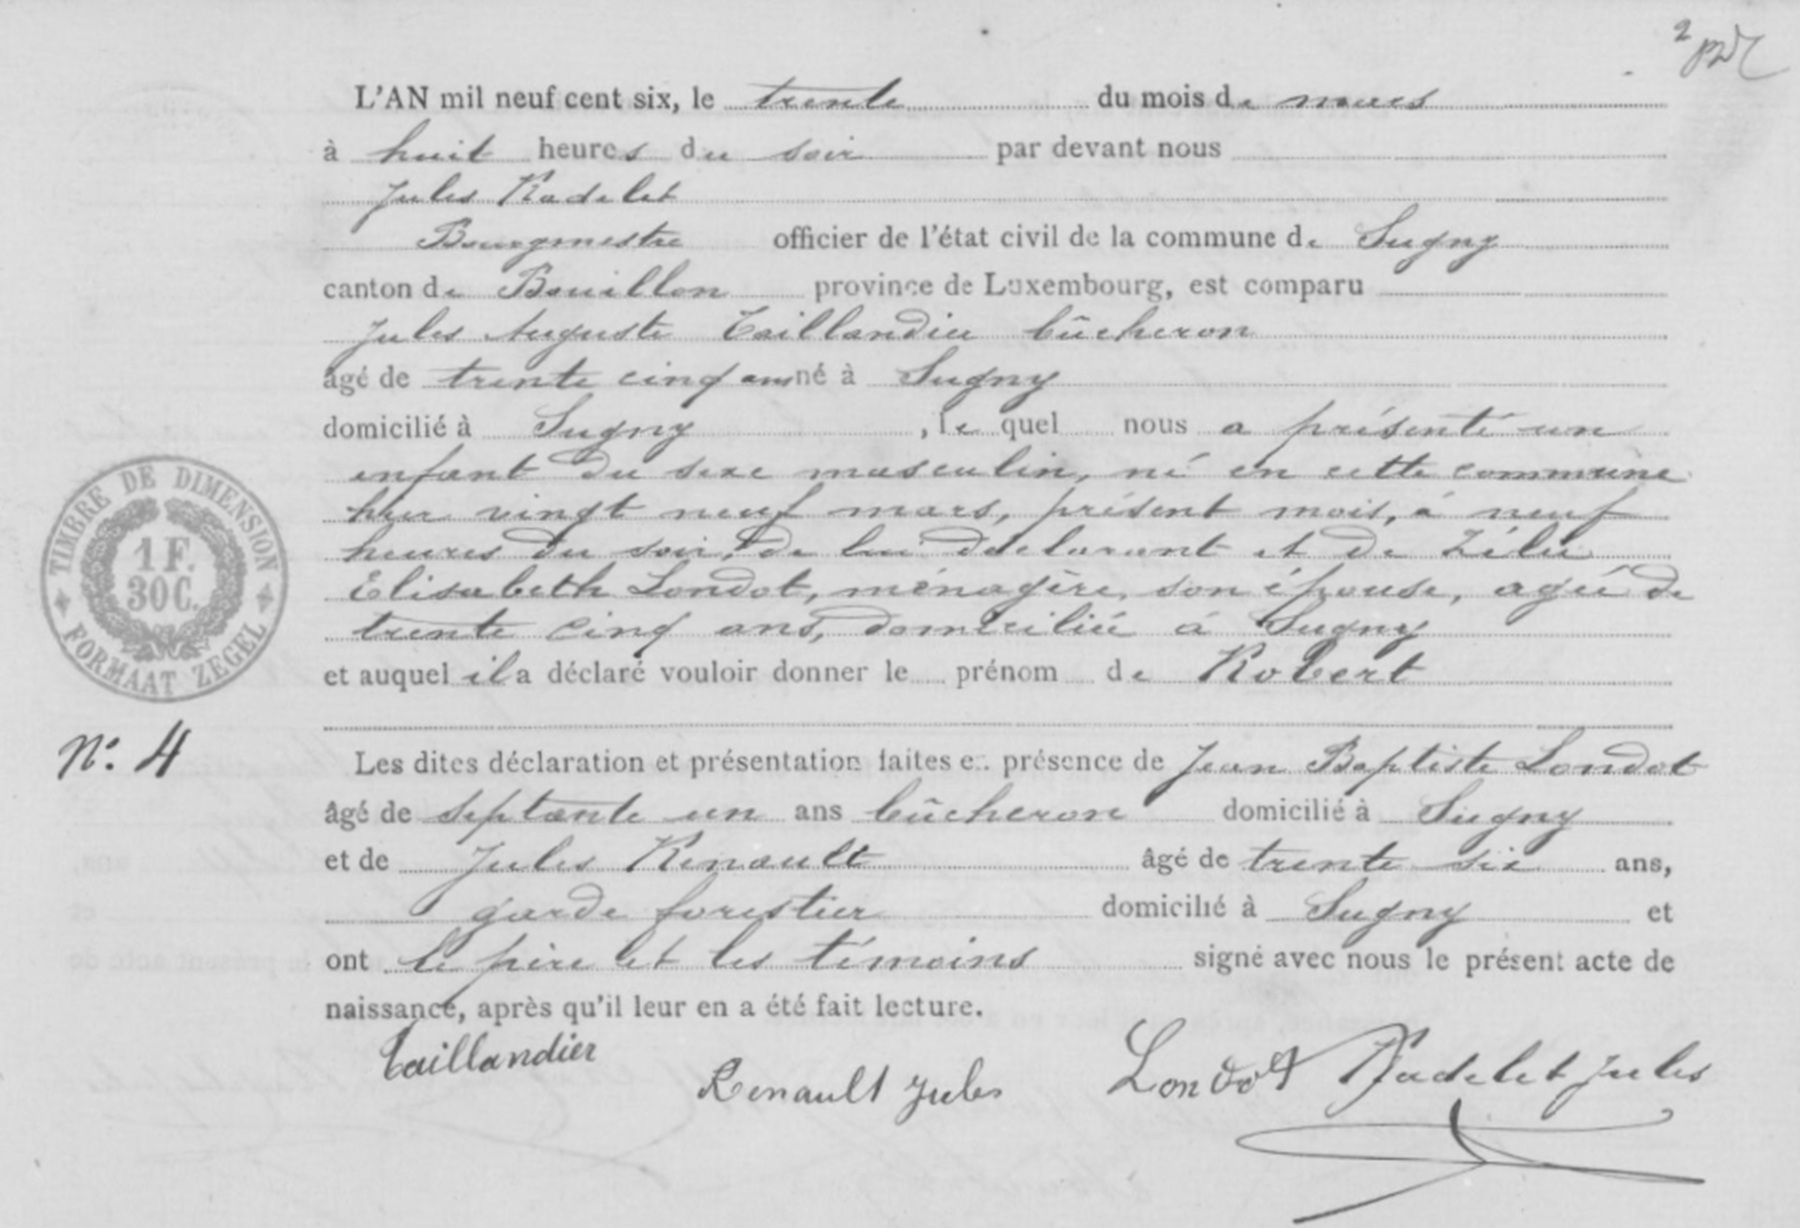 L'AN mil neuf cent six, le trente du mois de mars
à huit heures du soir par devant nous
Jules Radelet
Bourgmestre officier de l'état civil de la commune de Sugny
canton de Bouillon province de Luxembourg, est comparu
Jules Auguste Taillandier bûcheron
âgé de trente cinq ans né à Sugny
domicilié à Sugny, le quel nous a présenté un
enfant du sexe masculin, né en cette commune
hier vingt neuf mars, présent mois, à neuf
heures du soir, de lui déclarant et de Zélie
Elisabeth Londot, ménagère, son épouse, agée de
trente cinq ans, domiciliée à Sugny
et auquel il a déclaré vouloir donner le prénom de Robert
TIMBRE DE DIMENSION
1 F.
30 C.
FORMAAT ZEGEL
N.° 4
Les dites déclaration et présentation faites en présence de Jean Baptiste Londot
âgé de septante un ans bûcheron domicilié à Sugny
et de Jules Renault âgé de trente six ans,
garde forestier domicilié à Sugny et
ont le père et les témoins signé avec nous le présent acte de
naissance, après qu'il leur en a été fait lecture.
Taillandier
Renault Jules
Londot Radelet Jules